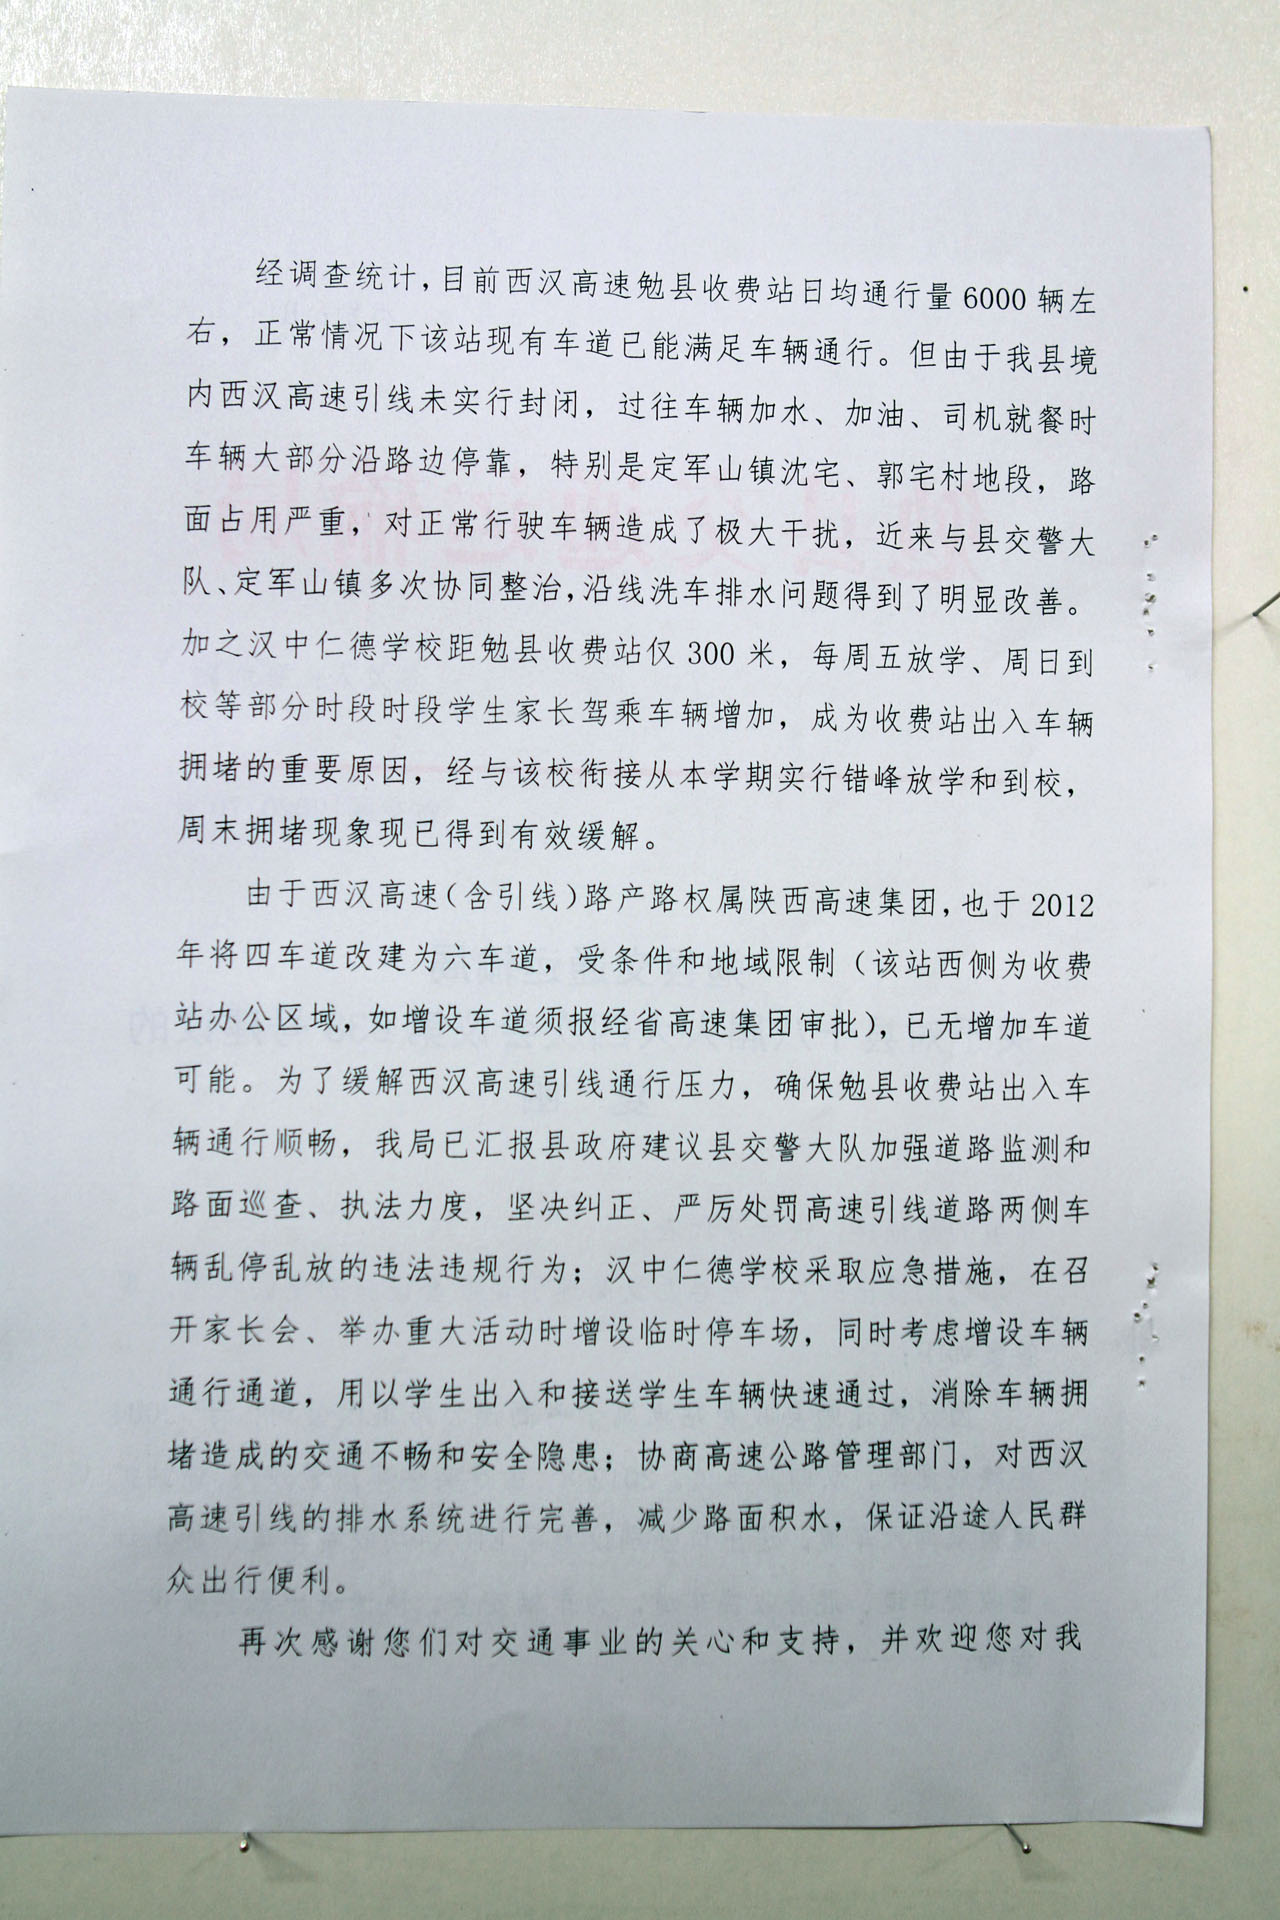 经调查统计，目前西汉高速勉县收费站日均通行量 6000 辆左
右，正常情况下该站现有车道已能满足车辆通行。但由于我县境
内西汉高速引线未实行封闭，过往车辆加水、加油、司机就餐时
车辆大部分沿路边停靠，特别是定军山镇沈宅、郭宅村地段，路
面占用严重，对正常行驶车辆造成了极大干扰，近来与县交警大
队、定军山镇多次协同整治，沿线洗车排水问题得到了明显改善。
加之汉中仁德学校距勉县收费站仅 300 米，每周五放学、周日到
校等部分时段时段学生家长驾乘车辆增加，成为收费站出入车辆
拥堵的重要原因，经与该校衔接从本学期实行错峰放学和到校，
周末拥堵现象现已得到有效缓解。
由于西汉高速（含引线）路产路权属陕西高速集团，也于 2012
年将四车道改建为六车道，受条件和地域限制（该站西侧为收费
站办公区域，如增设车道须报经省高速集团审批），已无增加车道
可能。为了缓解西汉高速引线通行压力，确保勉县收费站出入车
辆通行顺畅，我局已汇报县政府建议县交警大队加强道路监测和
路面巡查、执法力度，坚决纠正、严厉处罚高速引线道路两侧车
辆乱停乱放的违法违规行为；汉中仁德学校采取应急措施，在召
开家长会、举办重大活动时增设临时停车场，同时考虑增设车辆
通行通道，用以学生出入和接送学生车辆快速通过，消除车辆拥
堵造成的交通不畅和安全隐患；协商高速公路管理部门，对西汉
高速引线的排水系统进行完善，减少路面积水，保证沿途人民群
众出行便利。
再次感谢您们对交通事业的关心和支持，并欢迎您对我